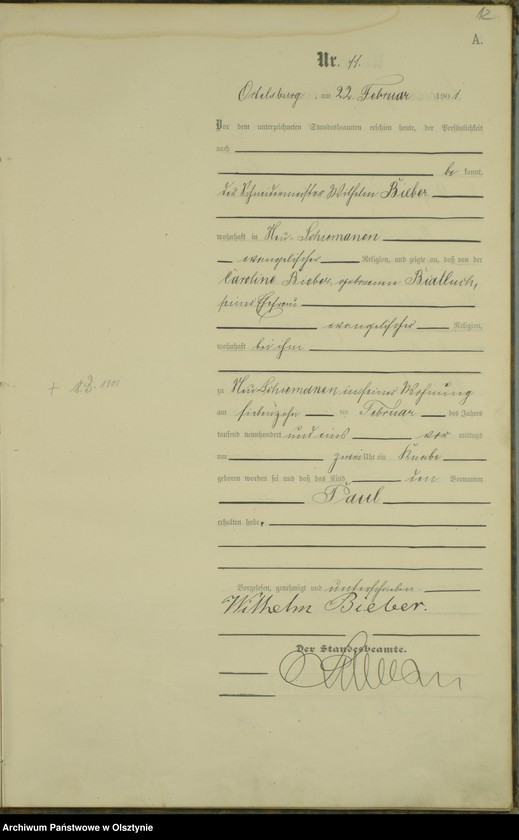 12
A.
Nr. 11.
Ortelsburg, am 22. Februar 1901.
Vor dem unterzeichneten Standesbeamten erschien heute, der Persönlichkeit
nach
bekannt,
der Schneidermeister Wilhelm Bieber
wohnhaft in Neu-Schiemanen
evangelischer Religion, und zeigte an, daß von der
Caroline Bieber, geborenen
seiner Ehefrau
evangelischer Religion,
wohnhaft bei ihm
zu Neu-Schiemanen in seiner Wohnung
am siebenzehn ten Februar des Jahres
tausend neunhundert und eins vor mittags
um zwei Uhr ein Knabe
geboren worden sei und daß das Kind den Vornamen
Paul
erhalten habe.
Vorgelesen, genehmigt und unterschrieben
Wilhelm Bieber.
Der Standesbeamte.
Archiwum Państwowe w Olsztynie